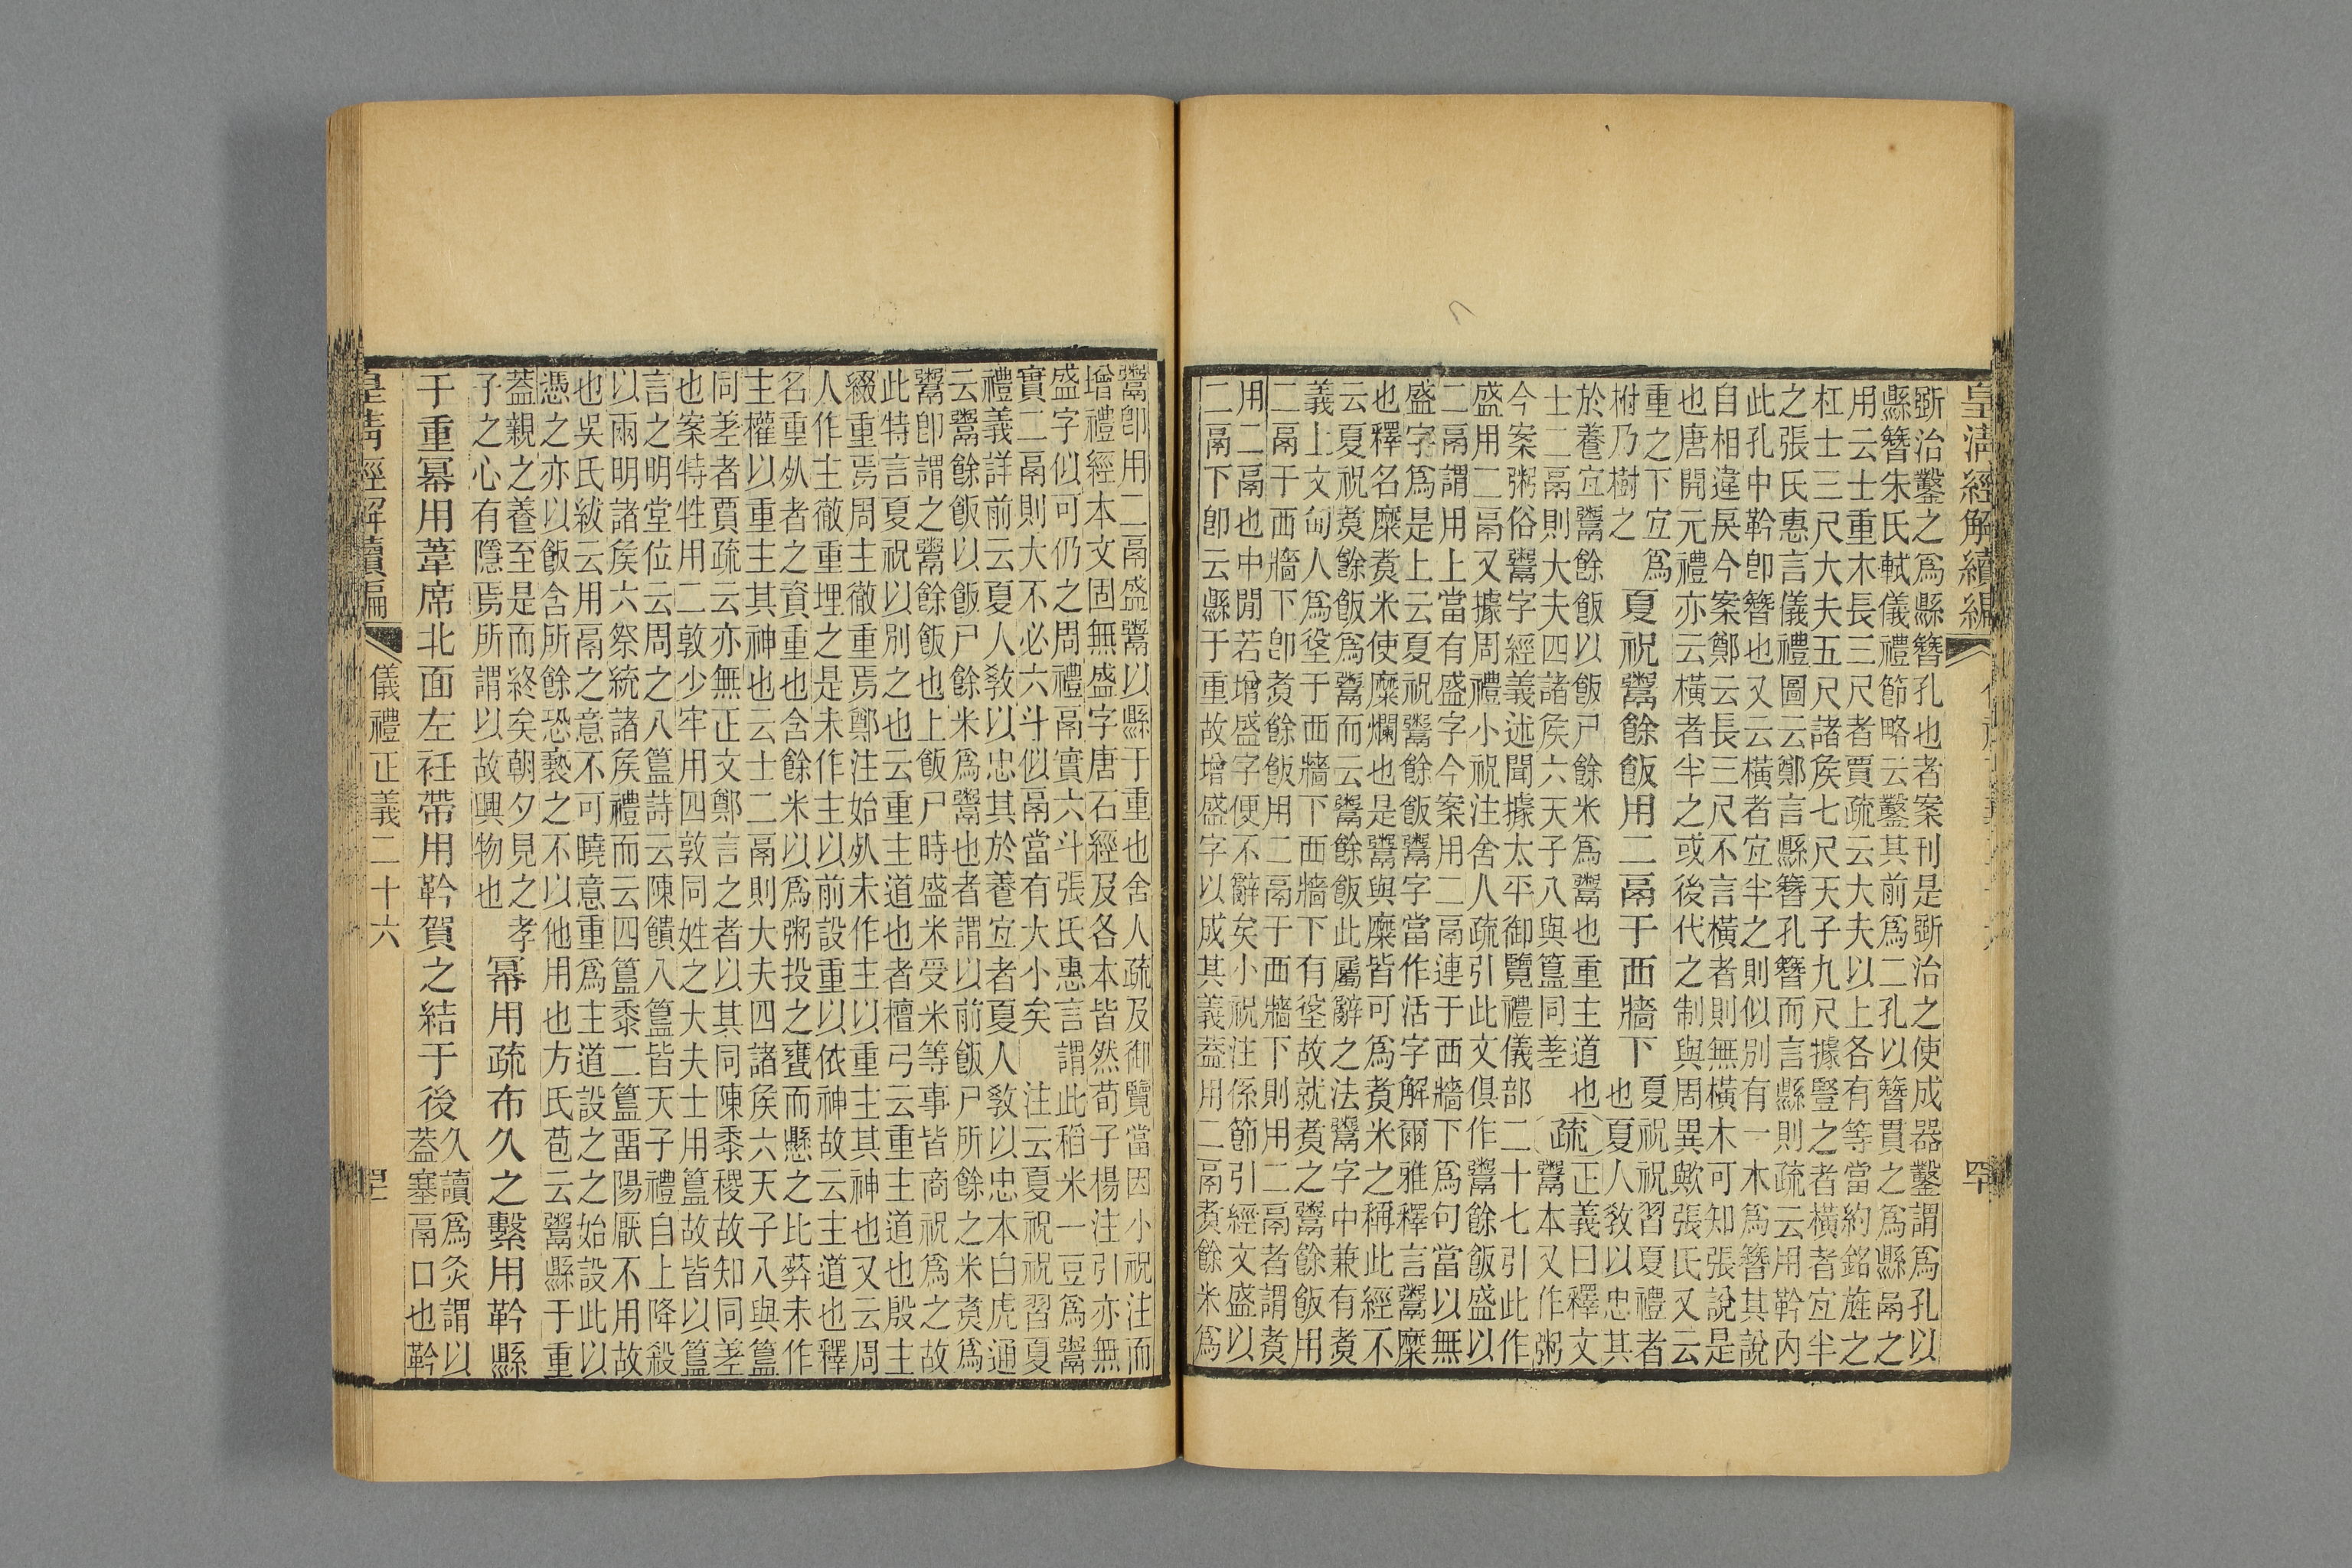 皇清經解續編
斲治鑿之爲縣簪孔也者案刊是斲治之使成器鑿謂爲孔以
縣簪朱氏軾儀禮節略云鑿其前爲二孔以簪貫之爲縣鬲之
用云士重木長三尺者賈疏云大夫以上各有等當約銘旌之
杠士三尺大夫五尺諸矦七尺天子九尺據豎之者橫者宐半
之張氏惠言儀禮圖云鄭言縣簪孔簪而言縣則疏云用靲內
此孔中靲卽簪也又云橫者宐半之則似別有一木爲簪其說
自相違戾今案鄭云長三尺不言橫者則無橫木可知張說是
也唐開元禮亦云橫者半之或後代之制與周異歟張氏又云
重之下宐爲
柎乃樹之
夏祝鬻餘飯用二鬲于西牆下
夏祝祝習夏禮者
也夏人敎以忠其
於養宐鬻餘飯以飯尸餘米爲鬻也重主道也
疏正義曰釋文
士二鬲則大夫四諸矦六天子八與簋同差
鬻本又作粥
今案粥俗鬻字經義述聞據太平御覽禮儀部二十七引此作
盛用二鬲又據周禮小祝注舍人疏引此文俱作鬻餘飯盛以
二鬲謂用上當有盛字今案用二鬲連于西牆下爲句當以無
盛字爲是上云夏祝鬻餘飯鬻字當作活字解爾雅釋言鬻糜
也釋名糜煑米使糜爛也是鬻與糜皆可爲煑米之稱此經不
云夏祝煑餘飯爲鬻而云鬻餘飯此屬辭之法鬻字中兼有煑
義上文甸人爲垼于西牆下西牆下有垼故就煑之鬻餘飯用
二鬲于西牆下卽煑餘飯用二鬲于西牆下則用二鬲者謂煑
用二鬲也中閒若增盛字便不辭矣小祝注係節引經文盛以
二鬲下卽云縣于重故增盛字以成其義葢用二鬲煑餘米爲
鬻卽用二鬲盛鬻以縣于重也舍人疏及御覽當因小祝注而
增禮經本文固無盛字唐石經及各本皆然荀子楊注引亦無
盛字似可仍之周禮鬲實六斗張氏惠言謂此稻米一豆爲鬻
實二鬲則大不必六斗似鬲當有大小矣　注云夏祝祝習夏
禮義詳前云夏人敎以忠其於養宐者夏人敎以忠本白虎通
云鬻餘飯以飯尸餘米爲鬻也者謂以前飯尸所餘之米煑爲
鬻卽謂之鬻餘飯也上飯尸時盛米受米等事皆商祝爲之故
此特言夏祝以別之也云重主道也者檀弓云重主道也殷主
綴重焉周主徹重焉鄭注始𣦸未作主以重主其神也又云周
人作主徹重埋之是未作主以前設重以依神故云主道也釋
名重𣦸者之資重也含餘米以爲粥投之甕而懸之比葬未作
主權以重主其神也云士二鬲則大夫四諸矦六天子八與簋
同差者賈疏云亦無正文鄭言之者以其同陳黍稷故知同差
也案特牲用二敦少牢用四敦同姓之大夫士用簋故皆以簋
言之明堂位云周之八簋詩云陳饋八簋皆天子禮自上降殺
以兩明諸矦六祭統諸矦禮而云四簋黍二簋畱陽厭不用故
也吳氏紱云用鬲之意不可曉意重爲主道設之之始設此以
憑之亦以飯含所餘恐褻之不以他用也方氏苞云鬻縣于重
葢親之養至是而終矣朝夕見之孝
子之心有隱焉所謂以故興物也
冪用疏布久之繫用靲縣
于重冪用葦席北面左衽帶用靲賀之結于後
久讀爲灸謂以
葢塞鬲口也靲
皇清經解續編
儀禮正義二十六